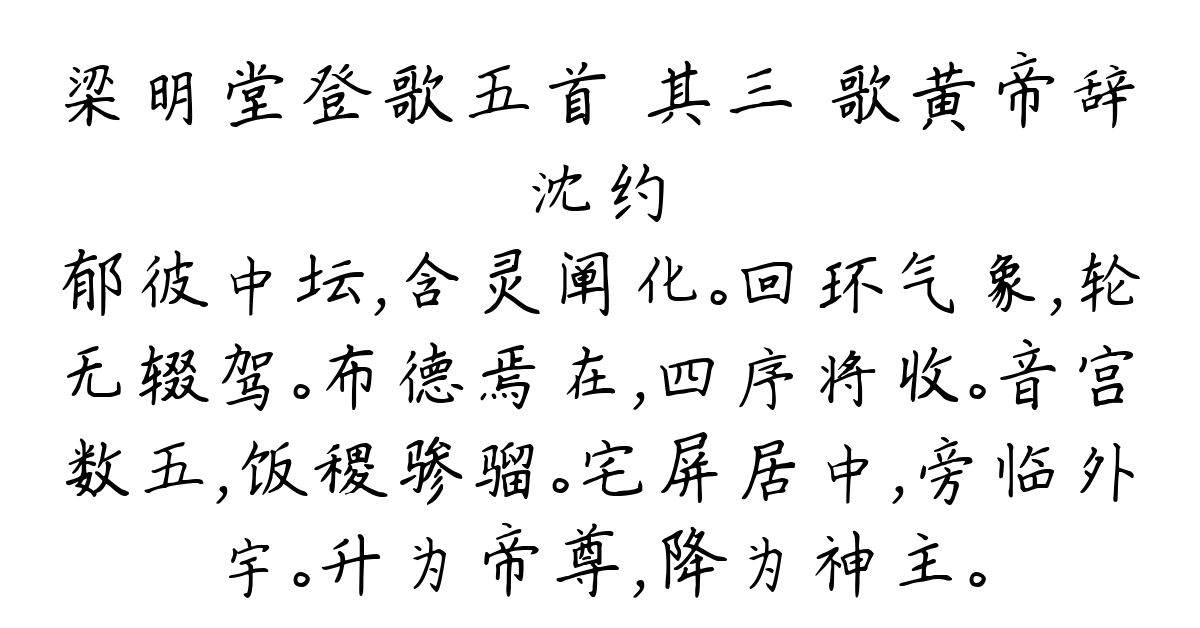 梁明堂登歌五首 其三 歌黄帝辞
沈约
郁彼中坛,含灵阐化。回环气象,轮
无辍驾。布德焉在,四序将收。音宫
数五,饭稷骖骝。宅屏居中,旁临外
宇。升为帝尊,降为神主。